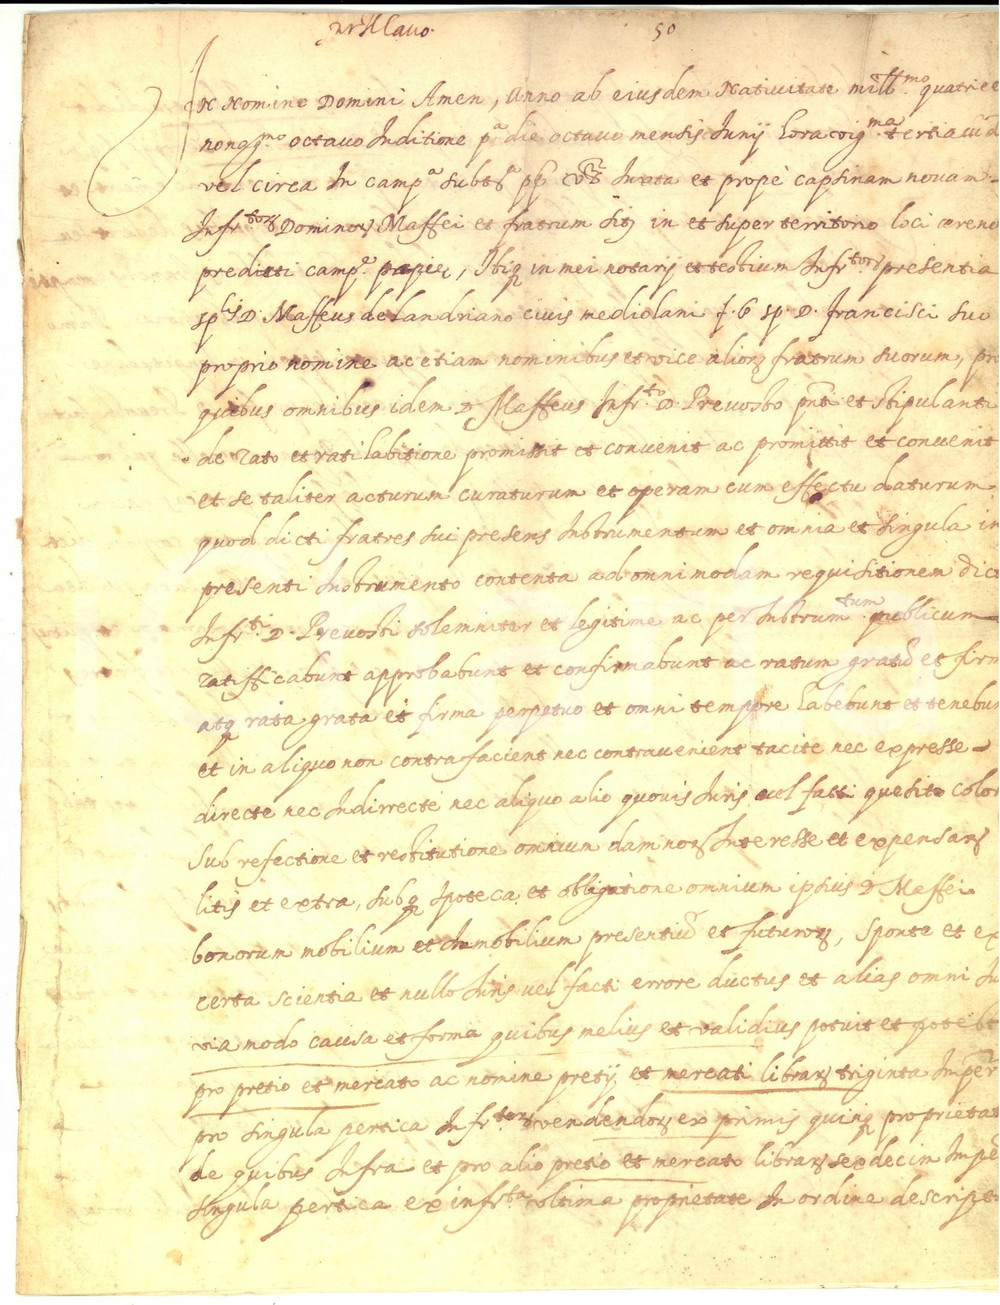 50
In Nomine Domini Amen, Anno ab eiusdem Nativitate mill.mo quatri
nong.mo octavo Inditione p.a die octavo mensis Iunij hora vig.ma tertia
vel circa In camp.a subts.a Iuxta et propè capsinam novam
Infr.torz Dominorz Maffei et fratrum sitz in et super territorio loci
preditti camp.e papez, Ibiqz in mei notarij et testium Infr.torz presentia
sp.lis D. Maffeus de Landriano civis mediolani f. q sp. D. Francisci suo
proprio nomine ac etiam nominibus et vice aliorz fratrum suorum, pro
quibus omnibus idem D. Maffeus Infr.to D. Prevosto pnte et stipulanti
de rato et ratihabitione promissit et convenit ac promittit et convenit
et se taliter acturum curaturum et operam cum effectu daturum
quod dicti fratres sui presens Instrumentum et omnia et singula in
presenti Instrumento contenta ad omnimodam requisitionem dict
Infr.ti D. Prevosti solemniter et legitime ac per Instrum.tum publicum
ratifficabunt approbabunt et confirmabunt ac ratum gratu et firm
atqz rata grata et firma perpetuo et omni tempore habebunt et tenebun
et in aliquo non contrafacient nec contravenient tacite nec expresse
directe nec Indirrecte nec aliquo alio quovis Iuris vel facti quesito color
sub refectione et restitutione omnium damnorz Interesse et expensarz
litis et extra, subqz Ipoteca et obligatione omnium ipsius D. Maffei
bonorum mobilium et Immobilium presentiu et futurorz, sponte et ex
certa scientia et nullo Iuris vel facti errore ductus et alias omni Iu
via modo causa et forma quibus melius et validius potuit et potest
pro pretio et mercato ac nomine pretij et mercati librarz triginta Imper
pro singula pertica Infr.torz vendendorz ex primis quinqz proprietat
de quibus Infra et pro alio pretio et mercato librarz sexdecim Impe
singula pertica ex infr.ta ultima proprietate In ordine descript